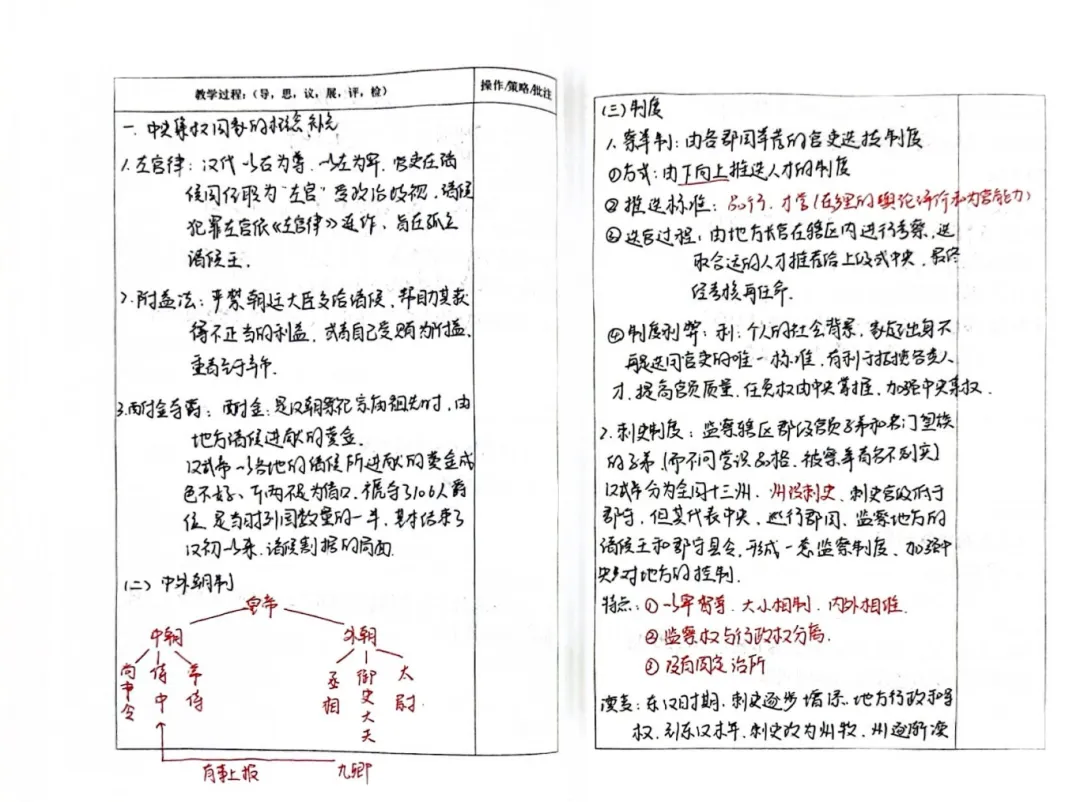 教学过程：（导，思，议，展，评，检）
操作/策略/批注
一、中央集权国家的概念补充
1.左官律：汉代以右为尊，以左为卑，官吏在诸
侯国任职为“左官”受政治歧视，诸侯
犯罪左官依《左官律》连作，旨在孤立
诸侯王．
2.附益法：严禁朝廷大臣支给诸侯，帮助其获
得不正当的利益，或者自己受贿为附益，
重者会于弃市．
3.酎金夺爵：酎金：是汉朝祭祀宗庙祖先时，由
地方诸侯进献的黄金．
汉武帝以各地的诸侯所进献的黄金成
色不好、斤两不足为借口，褫夺了106人爵
位，是当时列国数量的一半，基本结束了
汉初以来，诸侯割据的局面．
（二）中外朝制
皇帝
中朝 外朝
尚书令 侍中 常侍 丞相 御史大夫 太尉
有事上报 九卿
（三）制度
1.察举制：由各郡国举荐的官吏选拔制度
①方式：由下向上推选人才的制度
②推选标准：品行、才学（在乡里的舆论评价和为官能力）
③选官过程：由地方长官在辖区内进行考察，选
取合适的人才推荐给上级或中央，最终
经考核再任命．
④制度利弊：利：个人的社会背景，家庭出身不
再是选用官吏的唯一标准，有利于招揽各类人
才，提高官员质量，任免权由中央掌握，加强中央集权．
2.刺史制度：监察辖区郡级官员子弟和名门望族
的子弟（而不问学识品格，被察举者名不副实）
汉武帝分为全国十三州，州设刺史，刺史官级低于
郡守，但其代表中央，巡行郡国，监察地方的
诸侯王和郡守县令，形成一套监察制度，加强中
央对地方的控制．
特点：①以卑督尊、大小相制，内外相维．
②监察权与行政权分离．
③没有固定治所
演变：东汉时期，刺史逐步增添 地方行政和军
权，到东汉末年，刺史改为州牧，州逐渐演